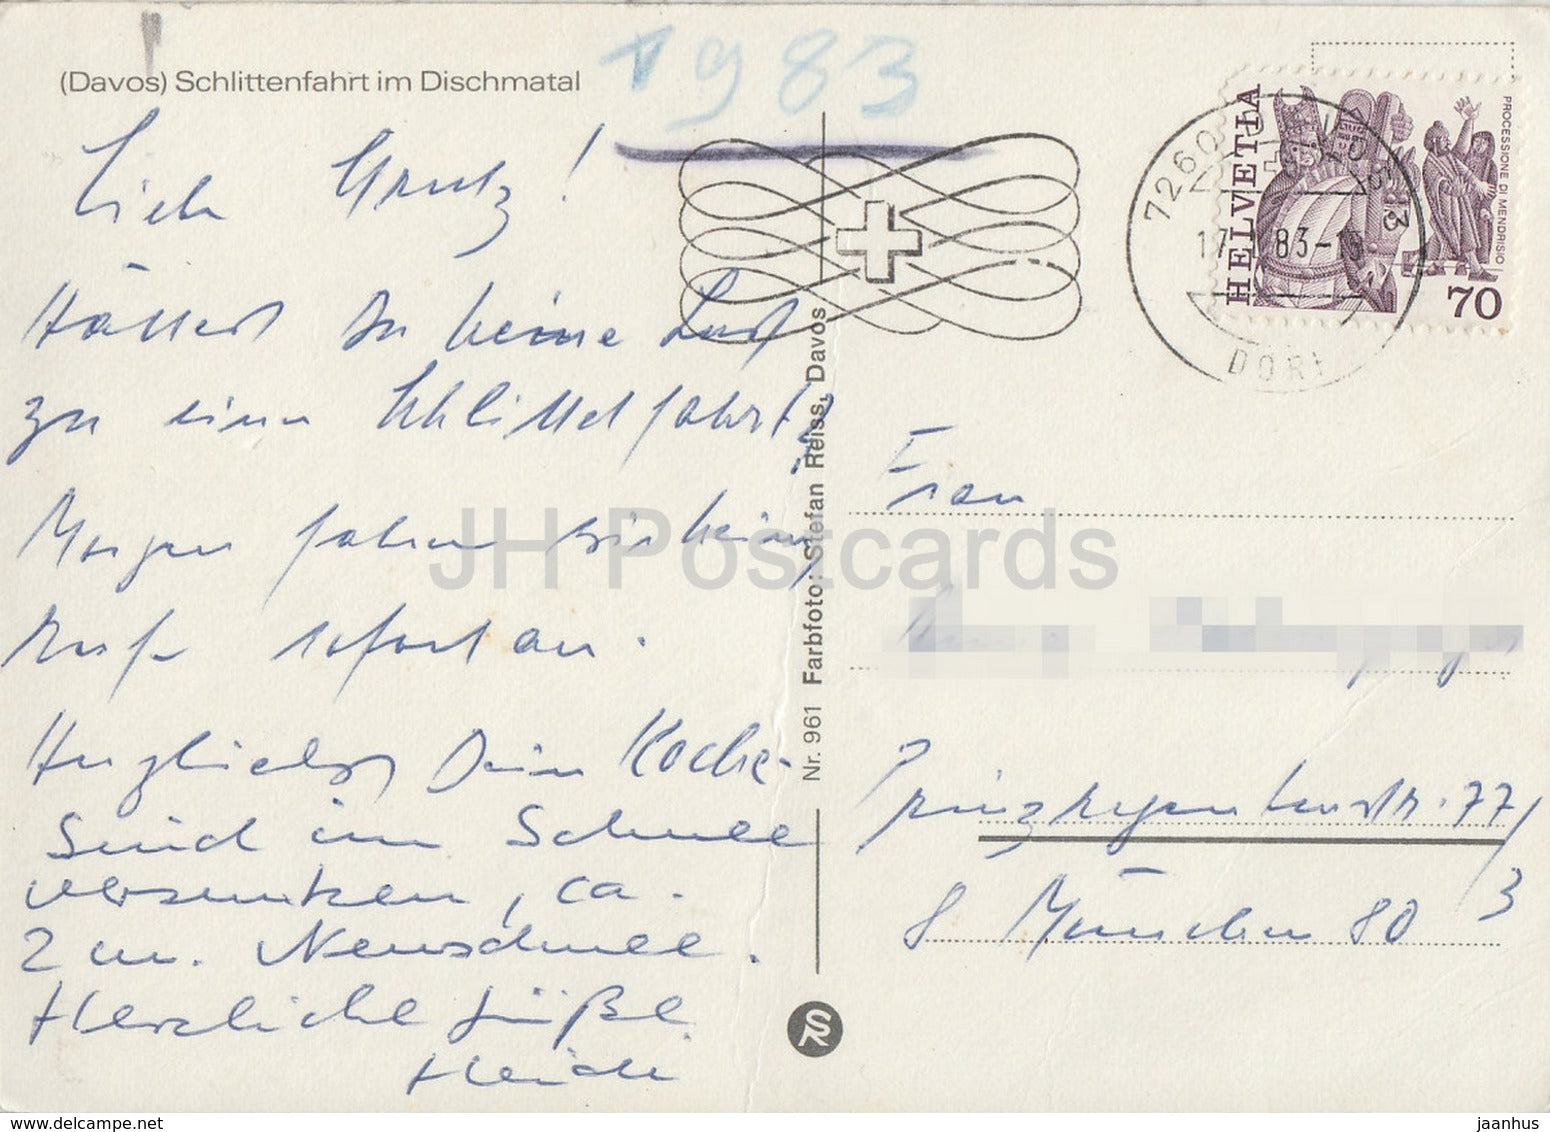 1983
(Davos) Schlittenfahrt im Dischmatal
Hättest Du keine Lust
zu einer Schlittelfahrt?
Morgen fahren wir heim,
Rufe sofort an.
Herzlichst Deine
Sind im Schnee
versunken, ca.
2 m. Neuschnee.
Herzliche Grüße
Heidi
Nr. 961 Farbfoto: Stefan Reiss, Davos
HELVETIA
PROCESSIONE DI MENDRISIO
70
7260 DAVOS 3
17. 1. 83-
DORF
Frau
Prinzregentenstr. 77/
3
8 München 80
SR
JH Postcards
www.delcampe.net
jaanhus